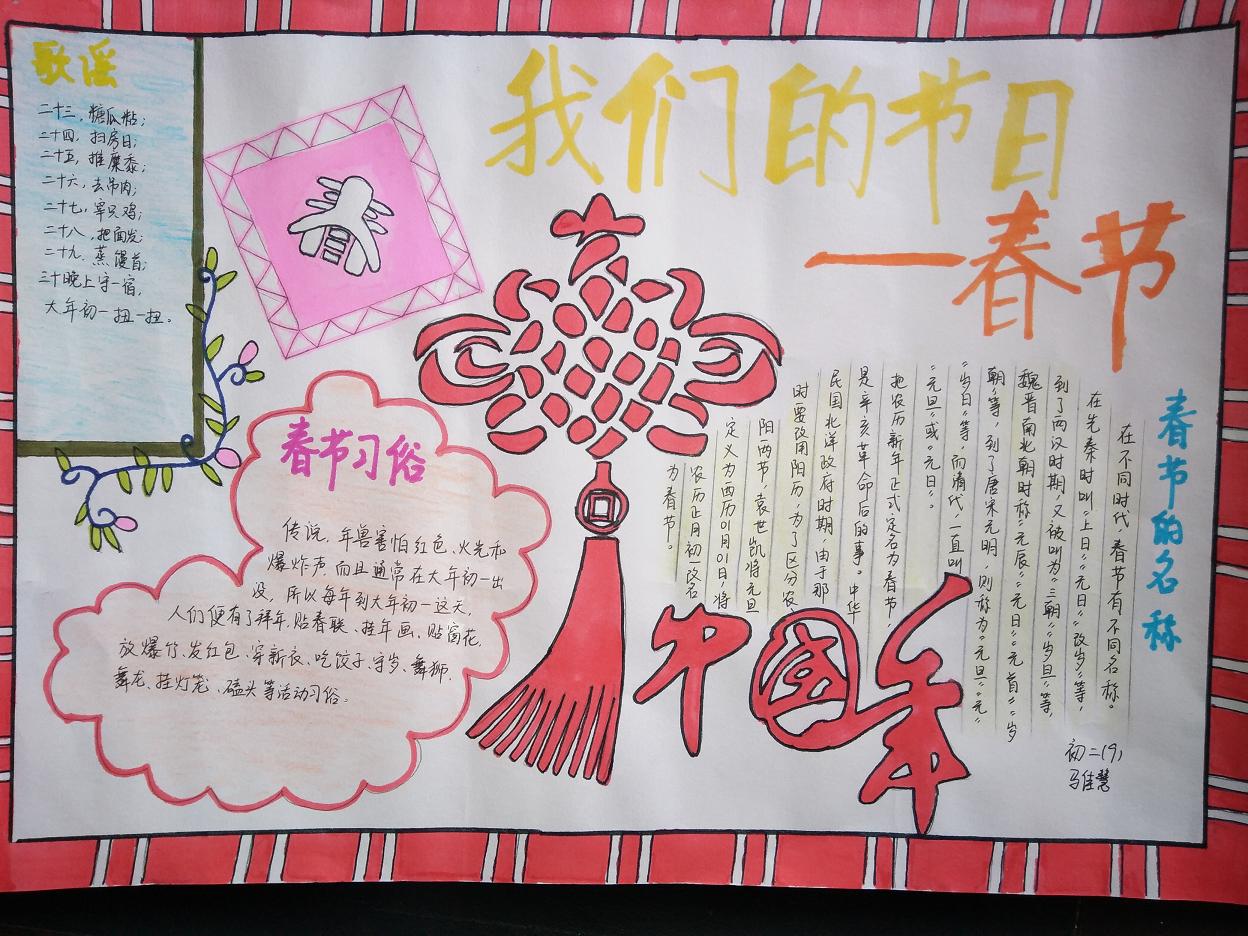 我们的节日
一春节
歌谣
二十三，糖瓜粘；
二十四，扫房日；
二十五，推糜黍；
二十六，去吊肉；
二十七，宰只鸡；
二十八，把面发；
二十九，蒸馒首；
三十晚上守一宿，
大年初一扭一扭。
春
春节习俗
传说，年兽害怕红色、火光和
爆炸声，而且通常在大年初一出
没，所以每年到大年初一这天，
人们便有了拜年、贴春联、挂年画、贴窗花、
放爆竹、发红包、穿新衣、吃饺子、守岁、舞狮、
舞龙、挂灯笼、磕头等活动习俗。
春节的名称
在不同时代，春节有不同名称。
在先秦时叫“上日”“元日”“改岁”等，
到了两汉时期，又被叫为“三朝”“岁旦”等，
魏晋南北朝时称“元辰”“元日”“元首”“岁
朝”等，到了唐宋元明，则称为“元旦”“元”
“岁日”等，而清代，一直叫
“元旦”或“元日”。
把农历新年正式定名为春节，
是辛亥革命后的事。中华
民国北洋政府时期，由于那
时要改用阳历，为了区分农
阳两节，袁世凯将元旦
定义为西历01月01日，将
农历正月初一改名
为春节。
中国年
初二(9)
马佳慧